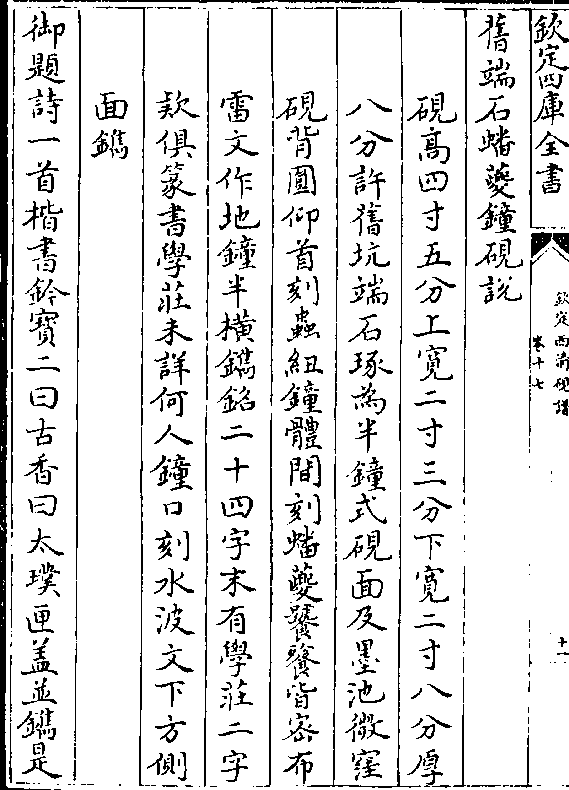 欽定四庫全書
欽定西淸硯譜
卷十七
十一
舊端石蟠夔鐘硯說
硯高四寸五分上寬二寸三分下寬二寸八分厚
八分許舊坑端石琢為半鐘式硯面及墨池微窪
硯背圓仰首刻蟲紐鐘體間刻蟠夔饕餮皆密布
雷文作地鐘半橫鐫銘二十四字末有學莊二字
欵俱篆書學莊未詳何人鐘口刻水波文下方側
面鐫
御題詩一首楷書鈐寳二曰古香曰太璞匣盖並鐫是